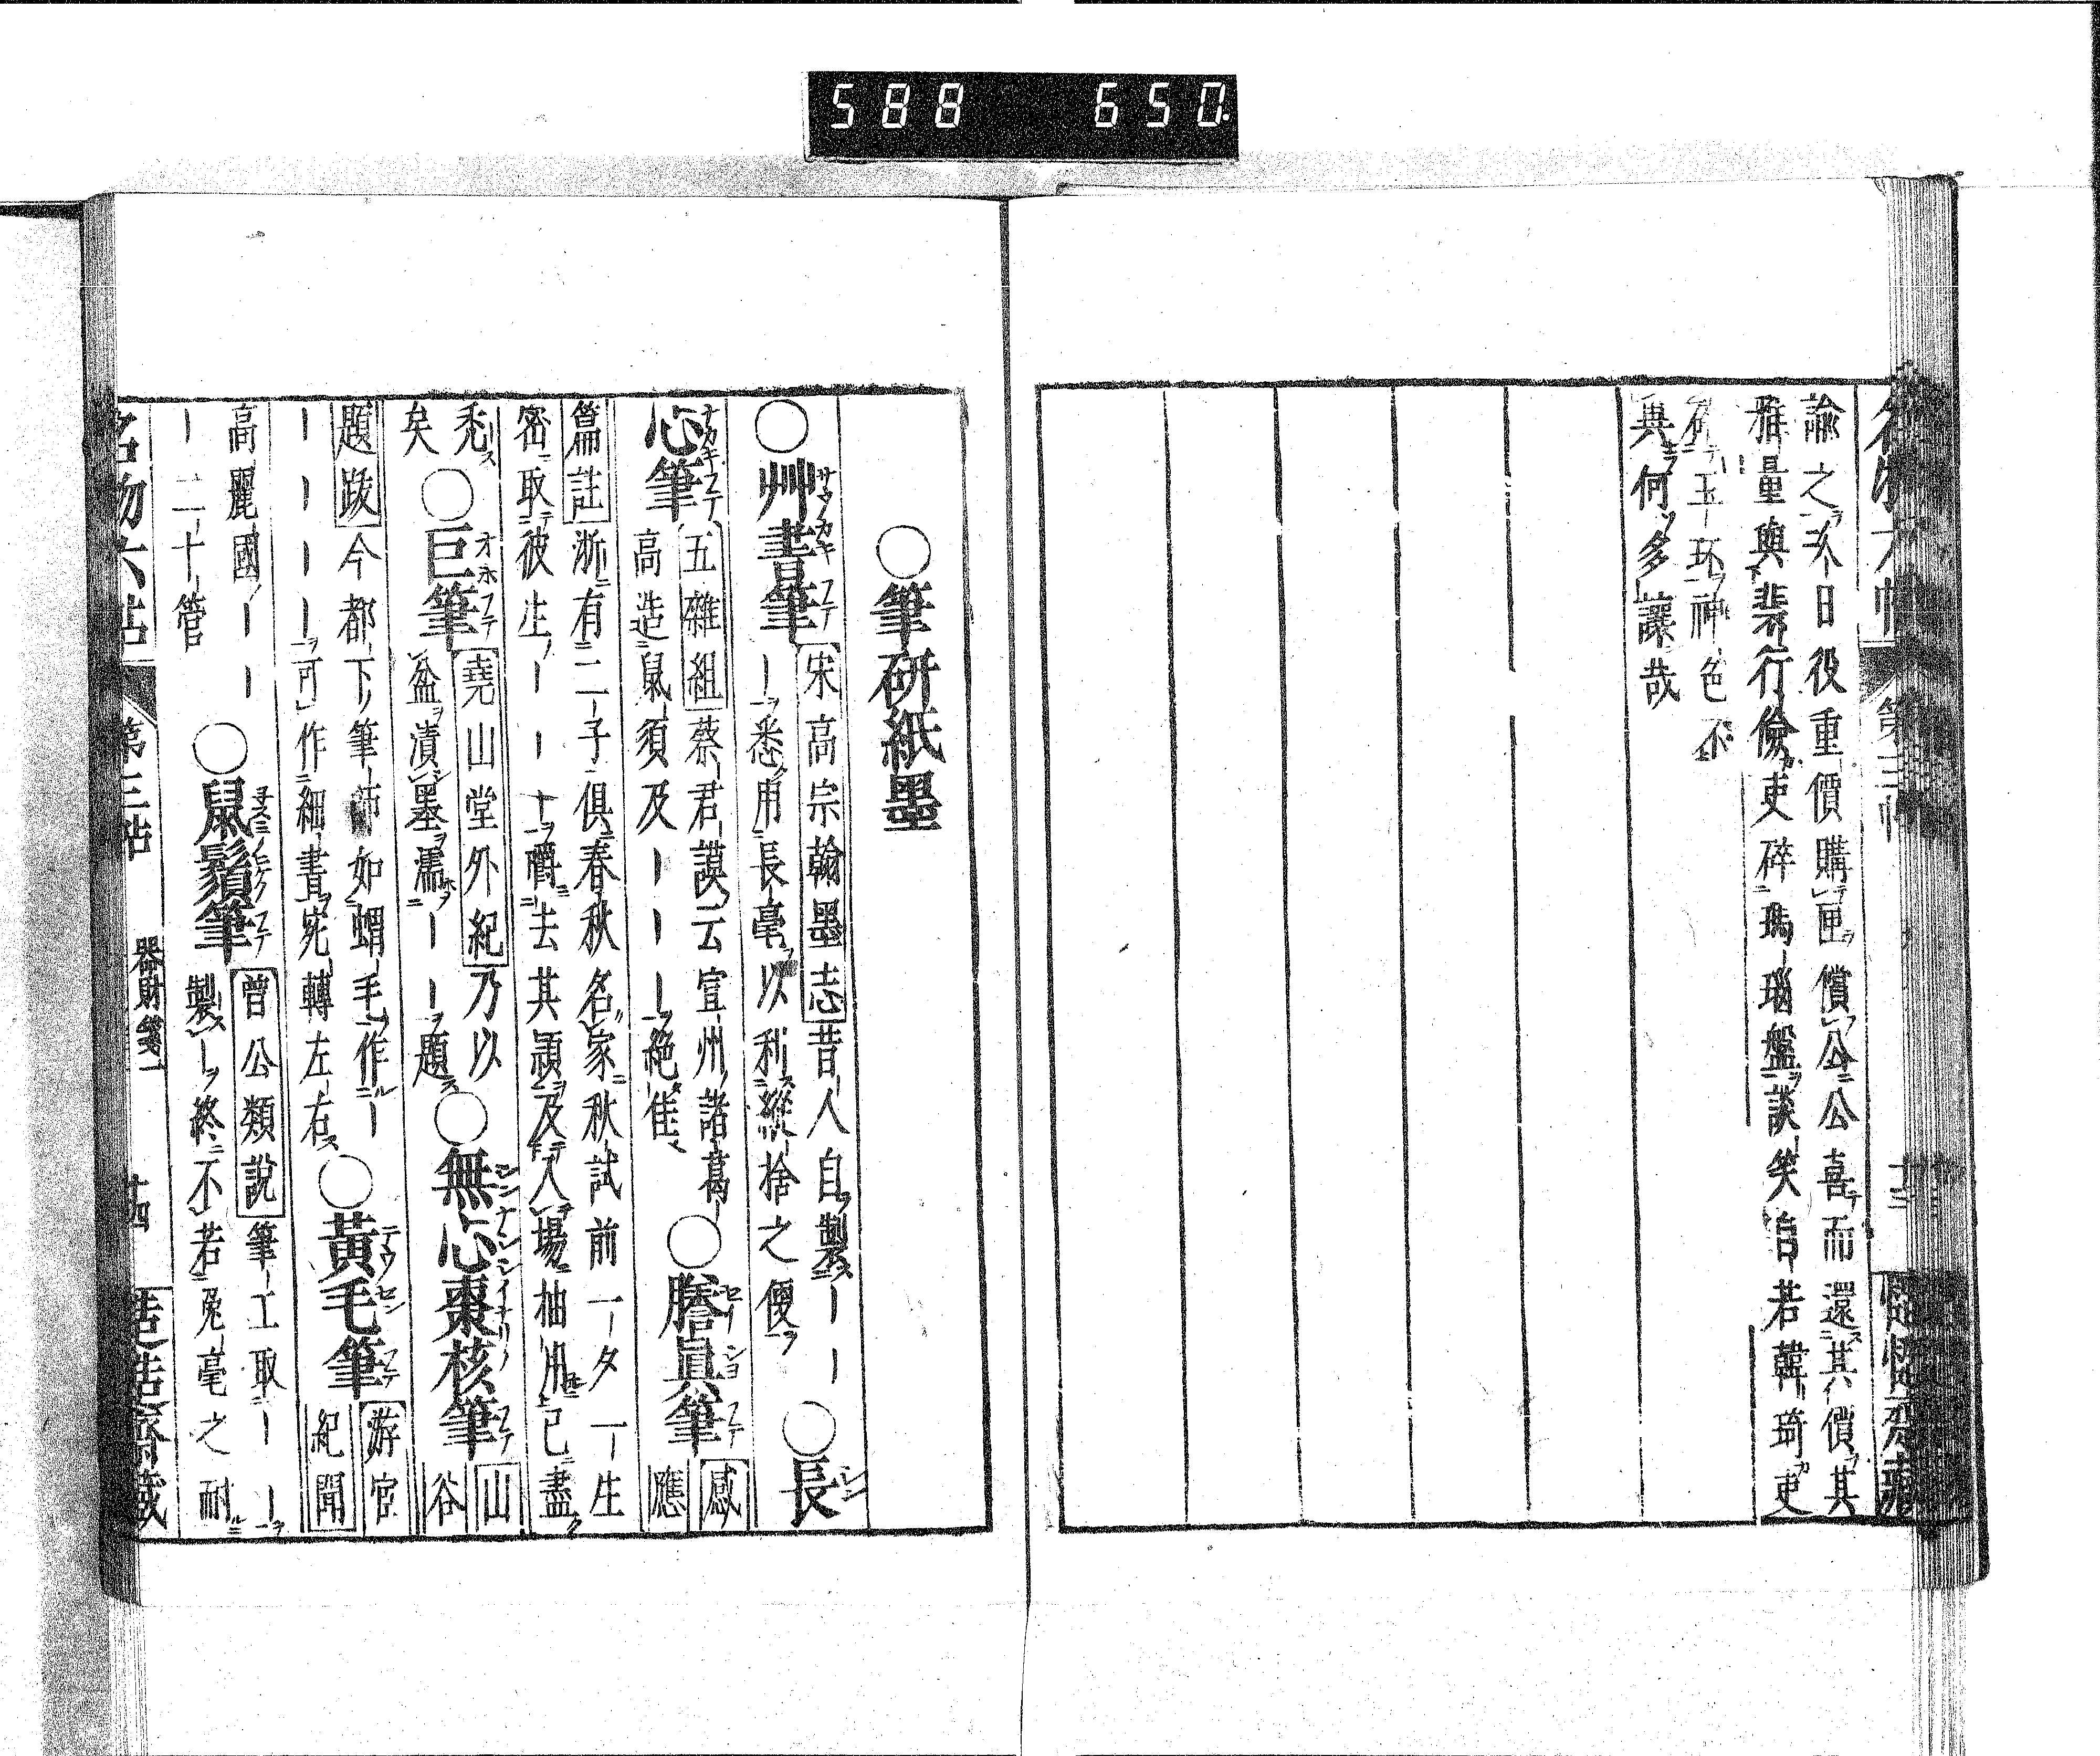 588 650.
諭之不日役重價購匣償公公喜而還其價其
雅量與裴行儉吏碎瑪瑙盤談笑自若韓琦吏
玉環神色不
異何多讓哉
第三帖
十三
○筆研紙墨
○艸書筆 宋高宗翰墨志昔人自製ーー
ー悉用長毫以利縱捨之便 ○長
心筆 五雜組蔡君謨云宣州諸葛
高造鼠須及ーーー絶佳 ○謄眞筆 感
應
篇註浙有二子俱春秋名家秋試前一夕一生
密取彼生ーー十嚼去其頴及入場抽用已盡
禿
矣 ○巨筆 堯山堂外紀乃以
盆漬墨濡ーー題 ○無心棗核筆 山
谷
題跋今都下筆師如蝟毛作ー
ーーーー可作細書宛轉左右 ○黃毛筆 游宦
紀聞
高麗國ーー
ー二十管 ○鼠鬚筆 曾公類說筆工取ーー
製ー終不若兔毫之耐
名物六帖
第三帖
器財箋一
十四